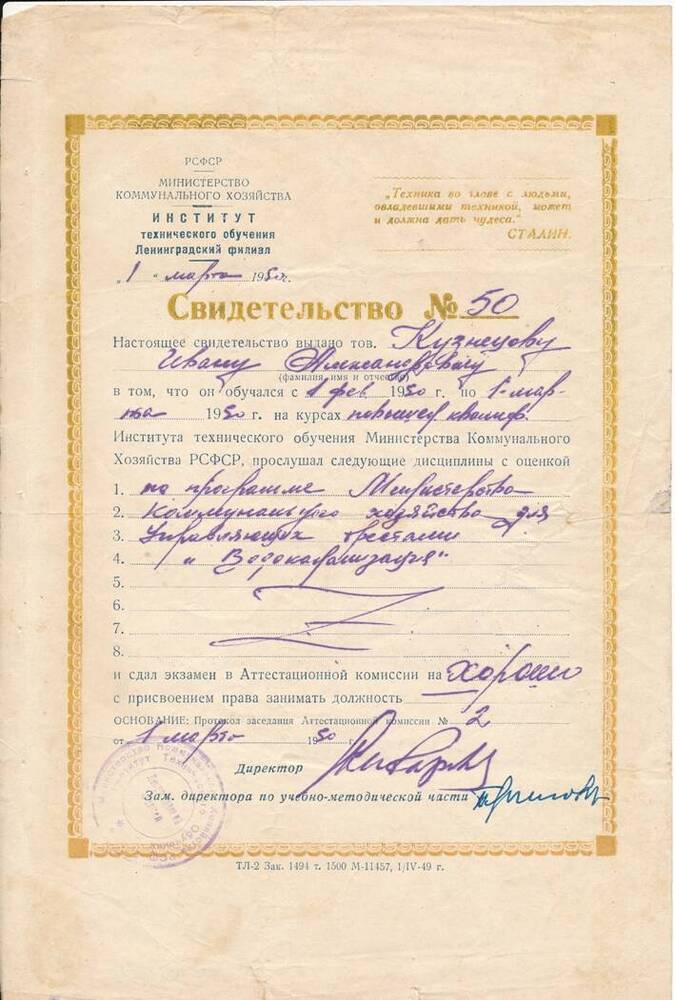 РСФСР
МИНИСТЕРСТВО
КОММУНАЛЬНОГО ХОЗЯЙСТВА
ИНСТИТУТ
технического обучения
Ленинградский филиал
"1" марта 1950г.
„Техника во главе с людьми,
овладевшими техникой, может
и должна дать чудеса."
СТАЛИН.
Свидетельство № 50
Настоящее свидетельство выдано тов. Кузнецову
Ивану Александровичу
(фамилия, имя и отчество)
в том, что он обучался с 1 фев 1950 г. по 1-мар-
та 1950 г. на курсах повышен. квалиф.
Института технического обучения Министерства Коммунального
Хозяйства РСФСР, прослушал следующие дисциплины с оценкой
1. по программе Министерства
2. Коммунального хозяйства для
3. управляющих трестами
4. „Водоканализация"
5.
6.
7.
8.
и сдал экзамен в Аттестационной комиссии на хорошо
с присвоением права занимать должность
ОСНОВАНИЕ: Протокол заседания Аттестационной комиссии № 2
от 1 марта 1950 г.
Директор
Зам. директора по учебно-методической части
ТЛ-2 Зак. 1494 т. 1500 М-11457, 1/IV-49 г.